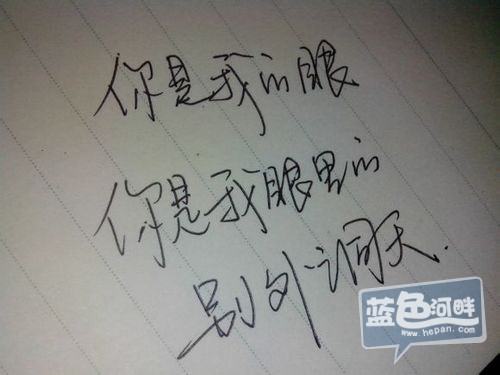 你是我的眼
你是我眼里的
别外洞天.
蓝色河畔
www.hepan.com